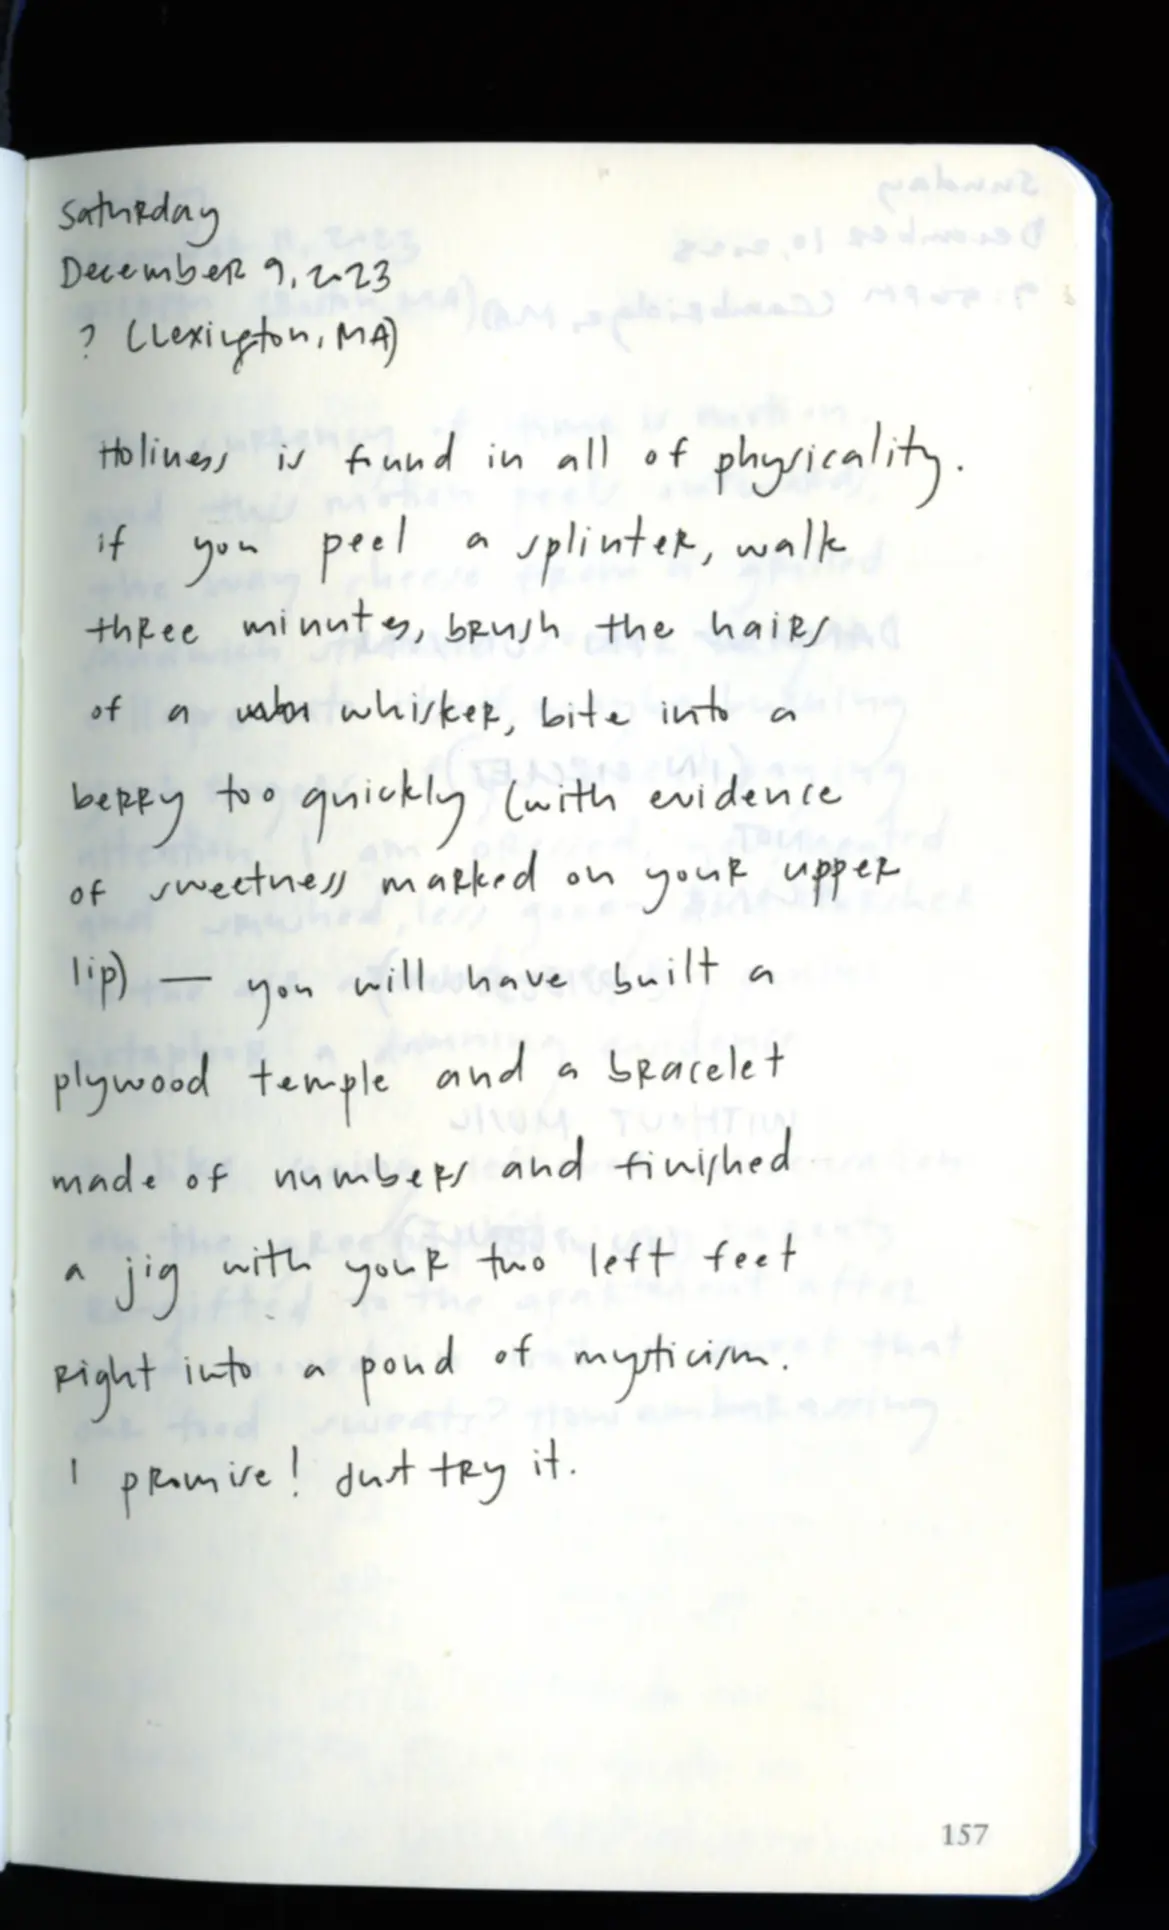 Saturday
December 9, 2023
? (Lexington, MA)
Holiness is found in all of physicality.
if you peel a splinter, walk
three minutes, brush the hairs
of a whisker, bite into a
berry too quickly (with evidence
of sweetness marked on your upper
lip) — you will have built a
plywood temple and a bracelet
made of numbers and finished
a jig with your two left feet
right into a pond of mysticism.
I promise! Just try it.
157